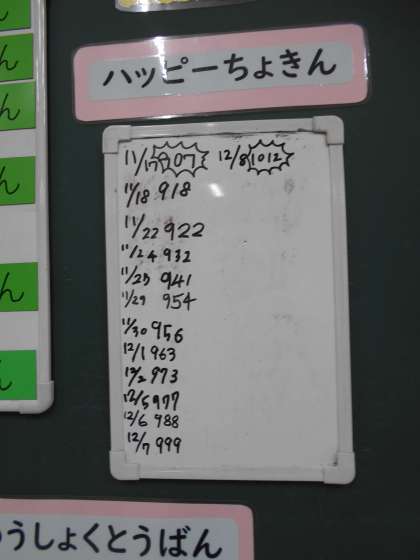 ん
ん
ん
ん
ん
ん
ハッピーちょきん
11/17 907
12/8 1012
11/18 918
11/22 922
11/24 932
11/25 941
11/29 954
11/30 956
12/1 963
12/2 973
12/5 977
12/6 988
12/7 999
うしょくとうばん